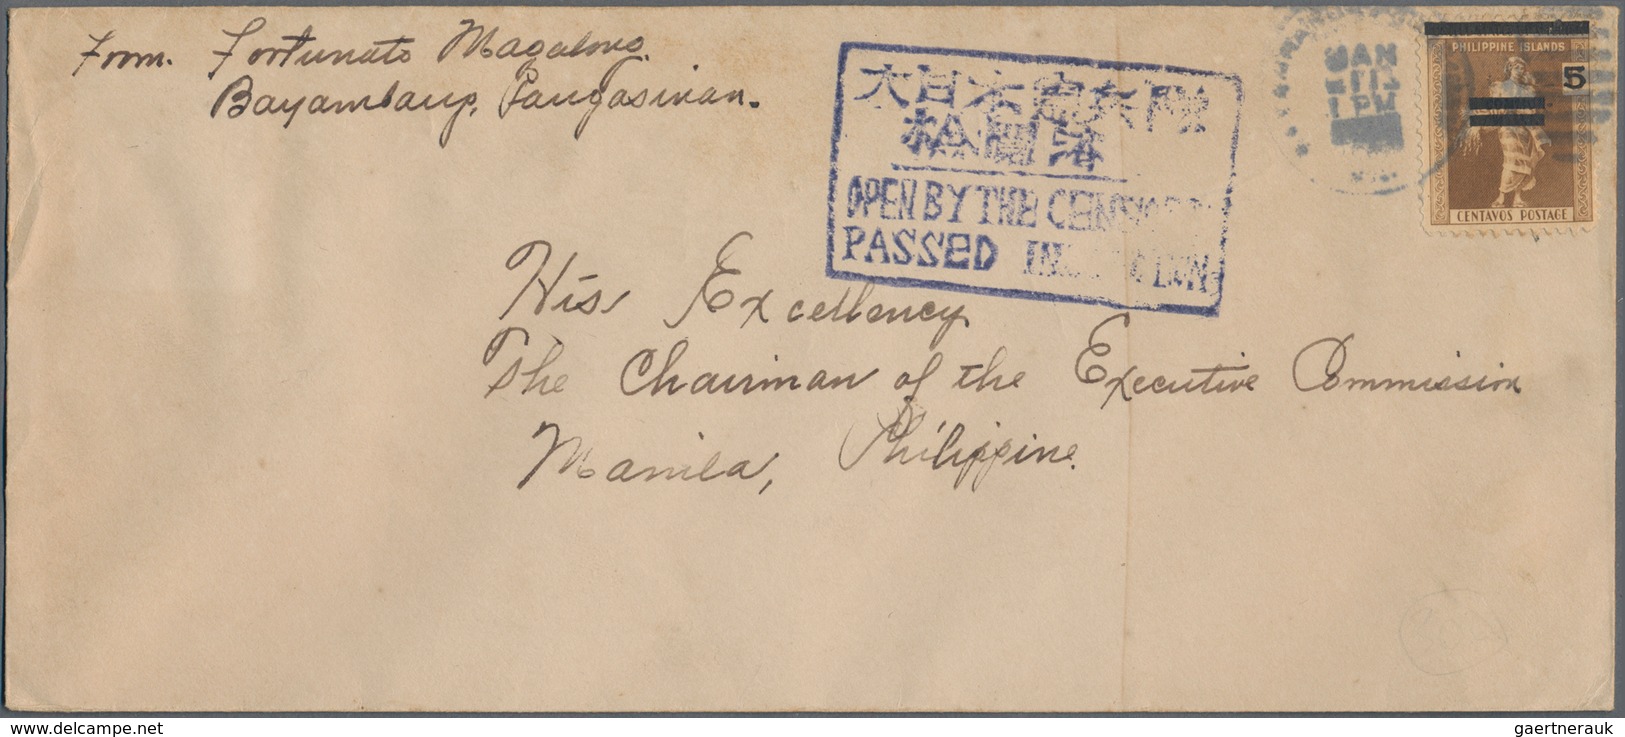 From. Fortunato Magalong.
Bayambang, Pangasinan.
大日本憲兵隊
検閲済
OPEN BY THE
PASSED
JAN
1 PM
PHILIPPINE ISLANDS
5
CENTAVOS POSTAGE
His Excellency
The Chairman of the Executive Commission
Manila, Philippine.
gaertnerauk